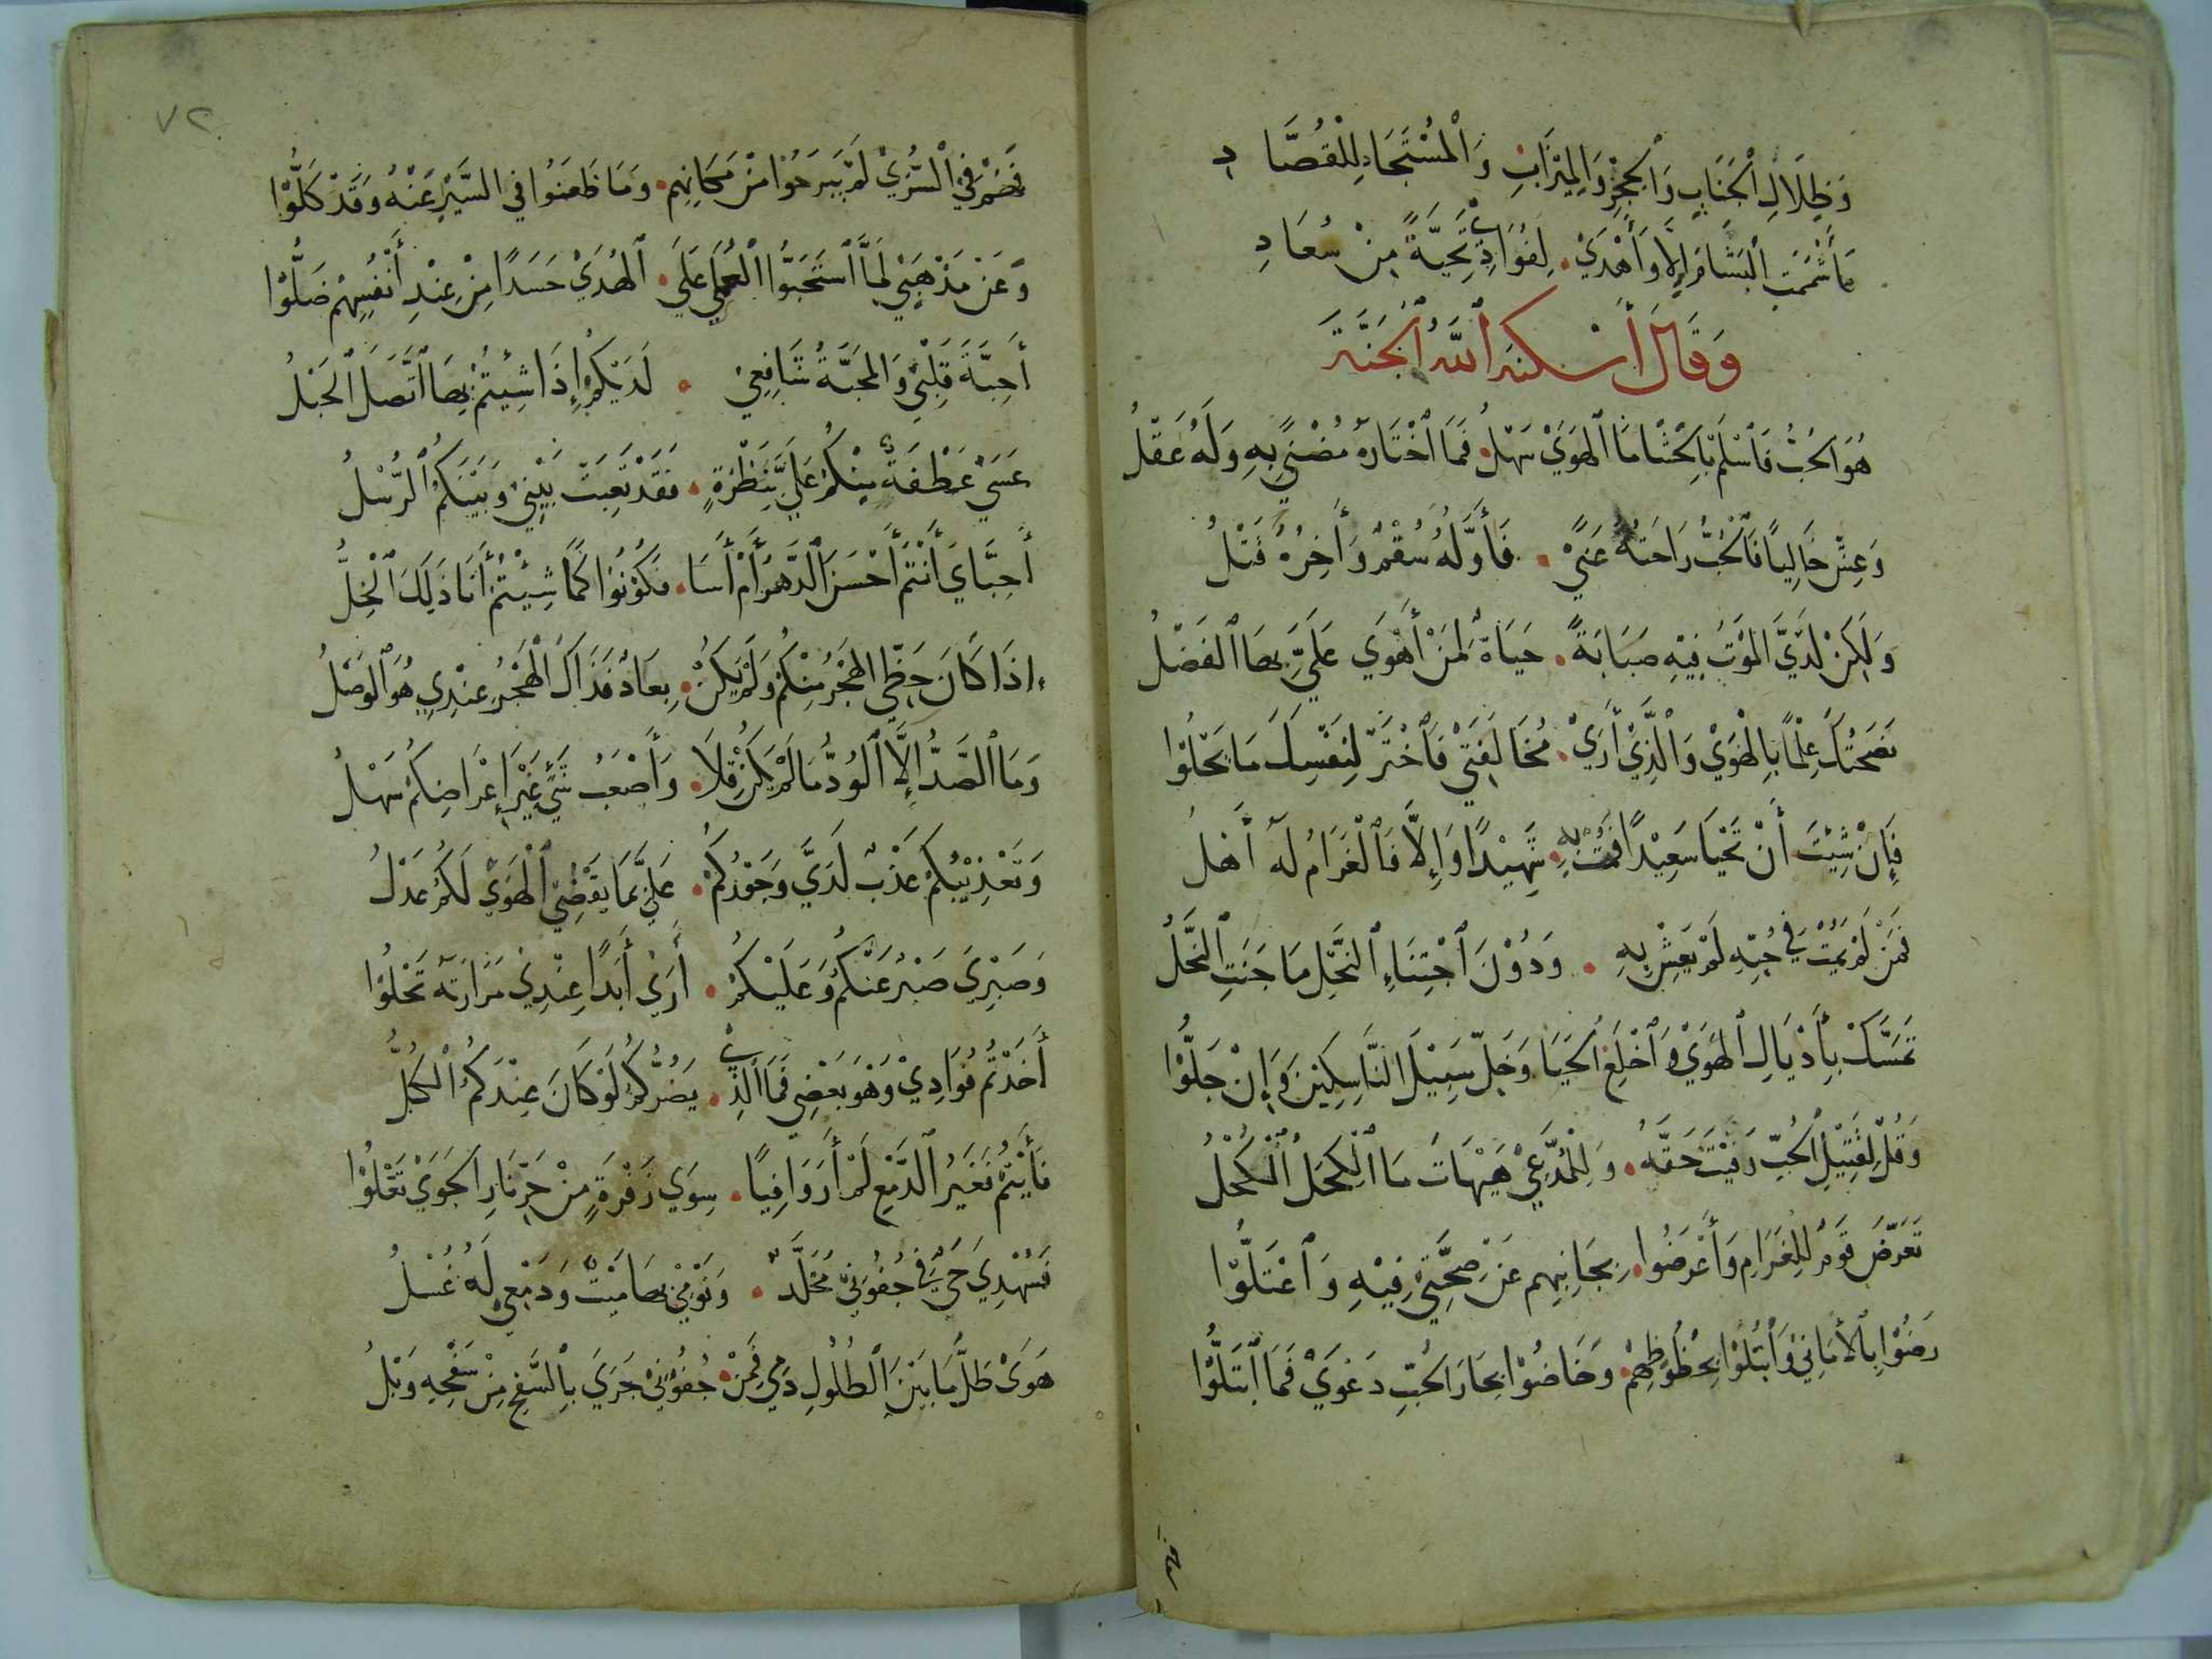 وَظِلَالِ الْجَنَابِ وَالْحِجْرِ وَالْمِيْزَابِ وَالْمُسْتَجَادِ لِلْقُصَّادِ
مَا شَمَمْتُ الْبَشَامَ إِلَّا وَأَهْدَيْ • لِفُوَادِيْ تَحِيَّةً مِنْ سُعَادِ
وَقَالَ أَسْكَنَهُ اللَّهُ الْجَنَّةَ
هُوَ الْحُبُّ فَاسْلَمْ بِالْحَشَا مَا الْهَوَيْ سَهْلُ • فَمَا اخْتَارَهُ مُضْنًي بِهِ وَلَهُ عَقْلُ
وَعِشْ خَالِيًا فَالْحُبُّ رَاحَتُهُ عَنًي • فَأَوَّلُهُ سُقْمٌ وَأَخِرُهُ قَتْلُ
وَلَكِنْ لَدَيَّ الْمَوْتُ فِيْهِ صَبَابَةً • حَيَاةٌ لِمَنْ أَهْوَي عَلَيَّ بِهَا الْفَضْلُ
نَصَحْتُكَ عِلْمًا بِالْهَوَيْ وَالَّذِيْ أَرَيْ • مُخَالَفَتِيْ فَاخْتَرْ لِنَفْسِكَ مَا يَحْلُوْا
فَإِنْ شِيْتَ أَنْ تَحْيَا سَعِيْدًا فَمُتْ بِهِ • شَهِيْدًا وَإِلَّا فَالْغَرَامُ لَهُ أَهْلُ
فَمَنْ لَمْ يَمُتْ فِيْ حُبِّهِ لَمْ يَعِشْ بِهِ • وَدُوْنَ اجْتِنَاءِ النَّحْلِ مَا جَنَتِ النَّحْلُ
تَمَسَّكْ بِأَذْيَالِ الْهَوَيْ وَاخْلَعِ الْحَيَا وَخَلِّ سَبِيْلَ النَّاسِكِيْنَ وَإِنْ جَلُّوْا
وَقُلْ لِقَتِيْلِ الْحُبِّ وَفَّيْتَ حَقَّهُ • وَلِلْمُدَّعِيْ هَيْهَاتَ مَا الْكَحَلُ الْكُحْلُ
تَعَرَّضَ قَوْمٌ لِلْغَرَامِ وَأَعْرَضُوا • بِجَانِبِهِم عَنْ صِحَّتِيْ فِيْهِ وَاعْتَلُّوْا
رَضُوْا بِالْأَمَانِيْ وَابْتُلُوْا بِحُظُوْظِهِمْ • وَخَاضُوْا بِحَارَ الْحُبِّ دَعْوَيْ فَمَا ابْتَلُّوْا
فهم
٧٢
فَهُمْ فِيْ السُّرَيْ لَمْ يَبْرَحُوْا مِنْ مَكَانِهِم • وَمَا ظَعَنُوْا فِي السَّيْرِ عَنْهُ وَقَدْ كَلُّوْا
وَعَنْ مَذْهَبِيْ لَمَّا اسْتَحَبُّوا الْعَمَي عَلَيَ • الْهُدَيْ حَسَدًا مِنْ عِنْدِ أَنْفُسِهِمْ ضَلُّوْا
أَحِبَّةَ قَلْبِيْ وَالْمَحَبَّةُ شَافِعِيْ • لَدَيْكُمْ إِذَا شِيْتُمْ بِهَا اتَّصَلَ الْحَبْلُ
عَسَيْ عَطْفَةٌ مِنْكُمْ عَلَيَّ بِنَظْرَةٍ • فَقَدْ تَعِبَتْ بَيْنِيْ وَبَيْنَكُمُ الرُّسْلُ
أَحِبَّايَ أَنْتُمْ أَحْسَنَ الدَّهْرُ أَمْ أَسَا • فَكُوْنُوْا كَمَا شِيْتُمْ أَنَا ذَلِكَ الْخِلُّ
إِذَا كَانَ حَظِّي الْهَجْرُ مِنْكُمْ وَلَمْ يَكُنْ • بِعَادٌ فَذَاكَ الْهَجْرُ عِنْدِي هُوَ الْوَصْلُ
وَمَا الصَّدُّ إِلَّا الْوُدُّ مَا لَمْ يَكُنْ قِلًا • وَأَصْعَبُ شَيْءٍ غَيْرَ إِعْرَاضِكُمْ سَهْلُ
وَتَعْذِيْبُكُمْ عَذْبٌ لَدَيَّ وَجَوْرُكُمْ • عَلَيَّ بِمَا يَقْضِيْ الْهَوَيْ لَكُمْ عَدْلُ
وَصَبْرِيَ صَبْرٌ عَنْكُمُ وَعَلَيْكُمُ • أَرَيْ أَبَدًا عِنْدِيْ مَرَارَتَهُ تَحْلُوْا
أَخَذْتُمْ فُوَادِيْ وَهْوَ بَعْضِي فَمَا الَّذِيْ • يَضُرُّكُمُ لَوْ كَانَ عِنْدَكُمُ الْكُلُّ
نَأَيْتُمْ فَغَيْرَ الدَّمْعِ لَمْ أَرَ وَافِيًا • سِوَي زَفْرَةٍ مِنْ حَرِّ نَارِ الْجَوَيْ تَعْلُوْا
فَسُهْدِيَ حَيٌّ فِيْ جُفُوْنِيْ مُخَلَّدٌ • وَنَوْمِيْ بِهَا مَيْتٌ وَدَمْعِي لَهُ غُسْلُ
هَوَيْ طَلَّ مَا بَيْنَ الطُّلُولِ دَمِي فَمِنْ • جُفُوْنِيْ جَرَيَ بِالسَّفْحِ مِنْ سَفْحِهِ وَبْلُ